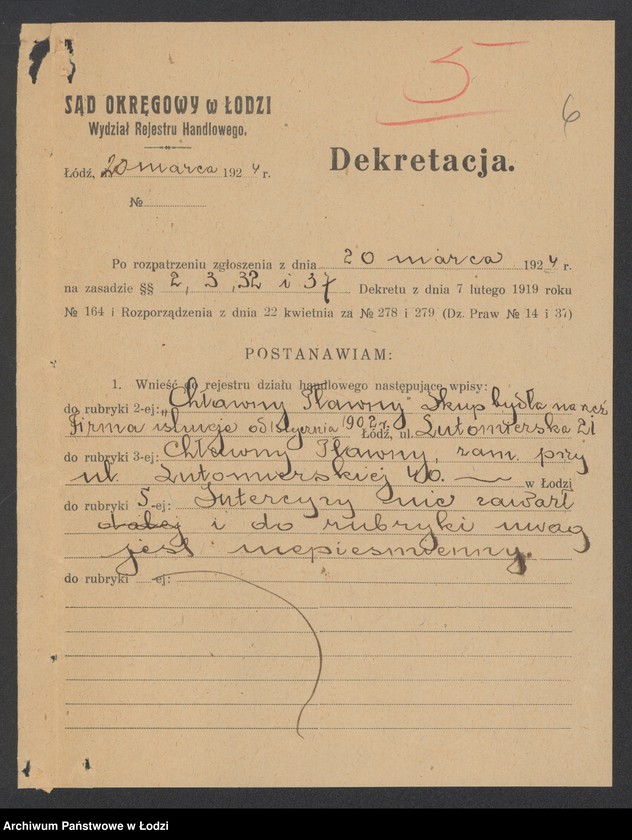 5
6
SĄD OKRĘGOWY w ŁODZI
Wydział Rejestru Handlowego.
Dekretacja.
Łódź, 20 marca 1924 r.
№
Po rozpatrzeniu zgłoszenia z dnia 20 marca 1924 r.
na zasadzie §§ 2, 3, 32 i 37 Dekretu z dnia 7 lutego 1919 roku
№ 164 i Rozporządzenia z dnia 22 kwietnia za № 278 i 279 (Dz. Praw № 14 i 37)
POSTANAWIAM:
1. Wnieść do rejestru działu handlowego następujące wpisy:
do rubryki 2-ej: „Chławny Pławny" Skup bydła na rzeź
Firma istnieje od 1 stycznia 1902 r. Łódź, ul. Lutomierska 21
do rubryki 3-ej: Chławny Pławny, zam. przy
ul. Lutomierskiej 40. w Łodzi
do rubryki 5-ej: Intercyzy nie zawarł
i do rubryki uwag
jest niepiśmienny.
do rubryki -ej:
Archiwum Państwowe w Łodzi